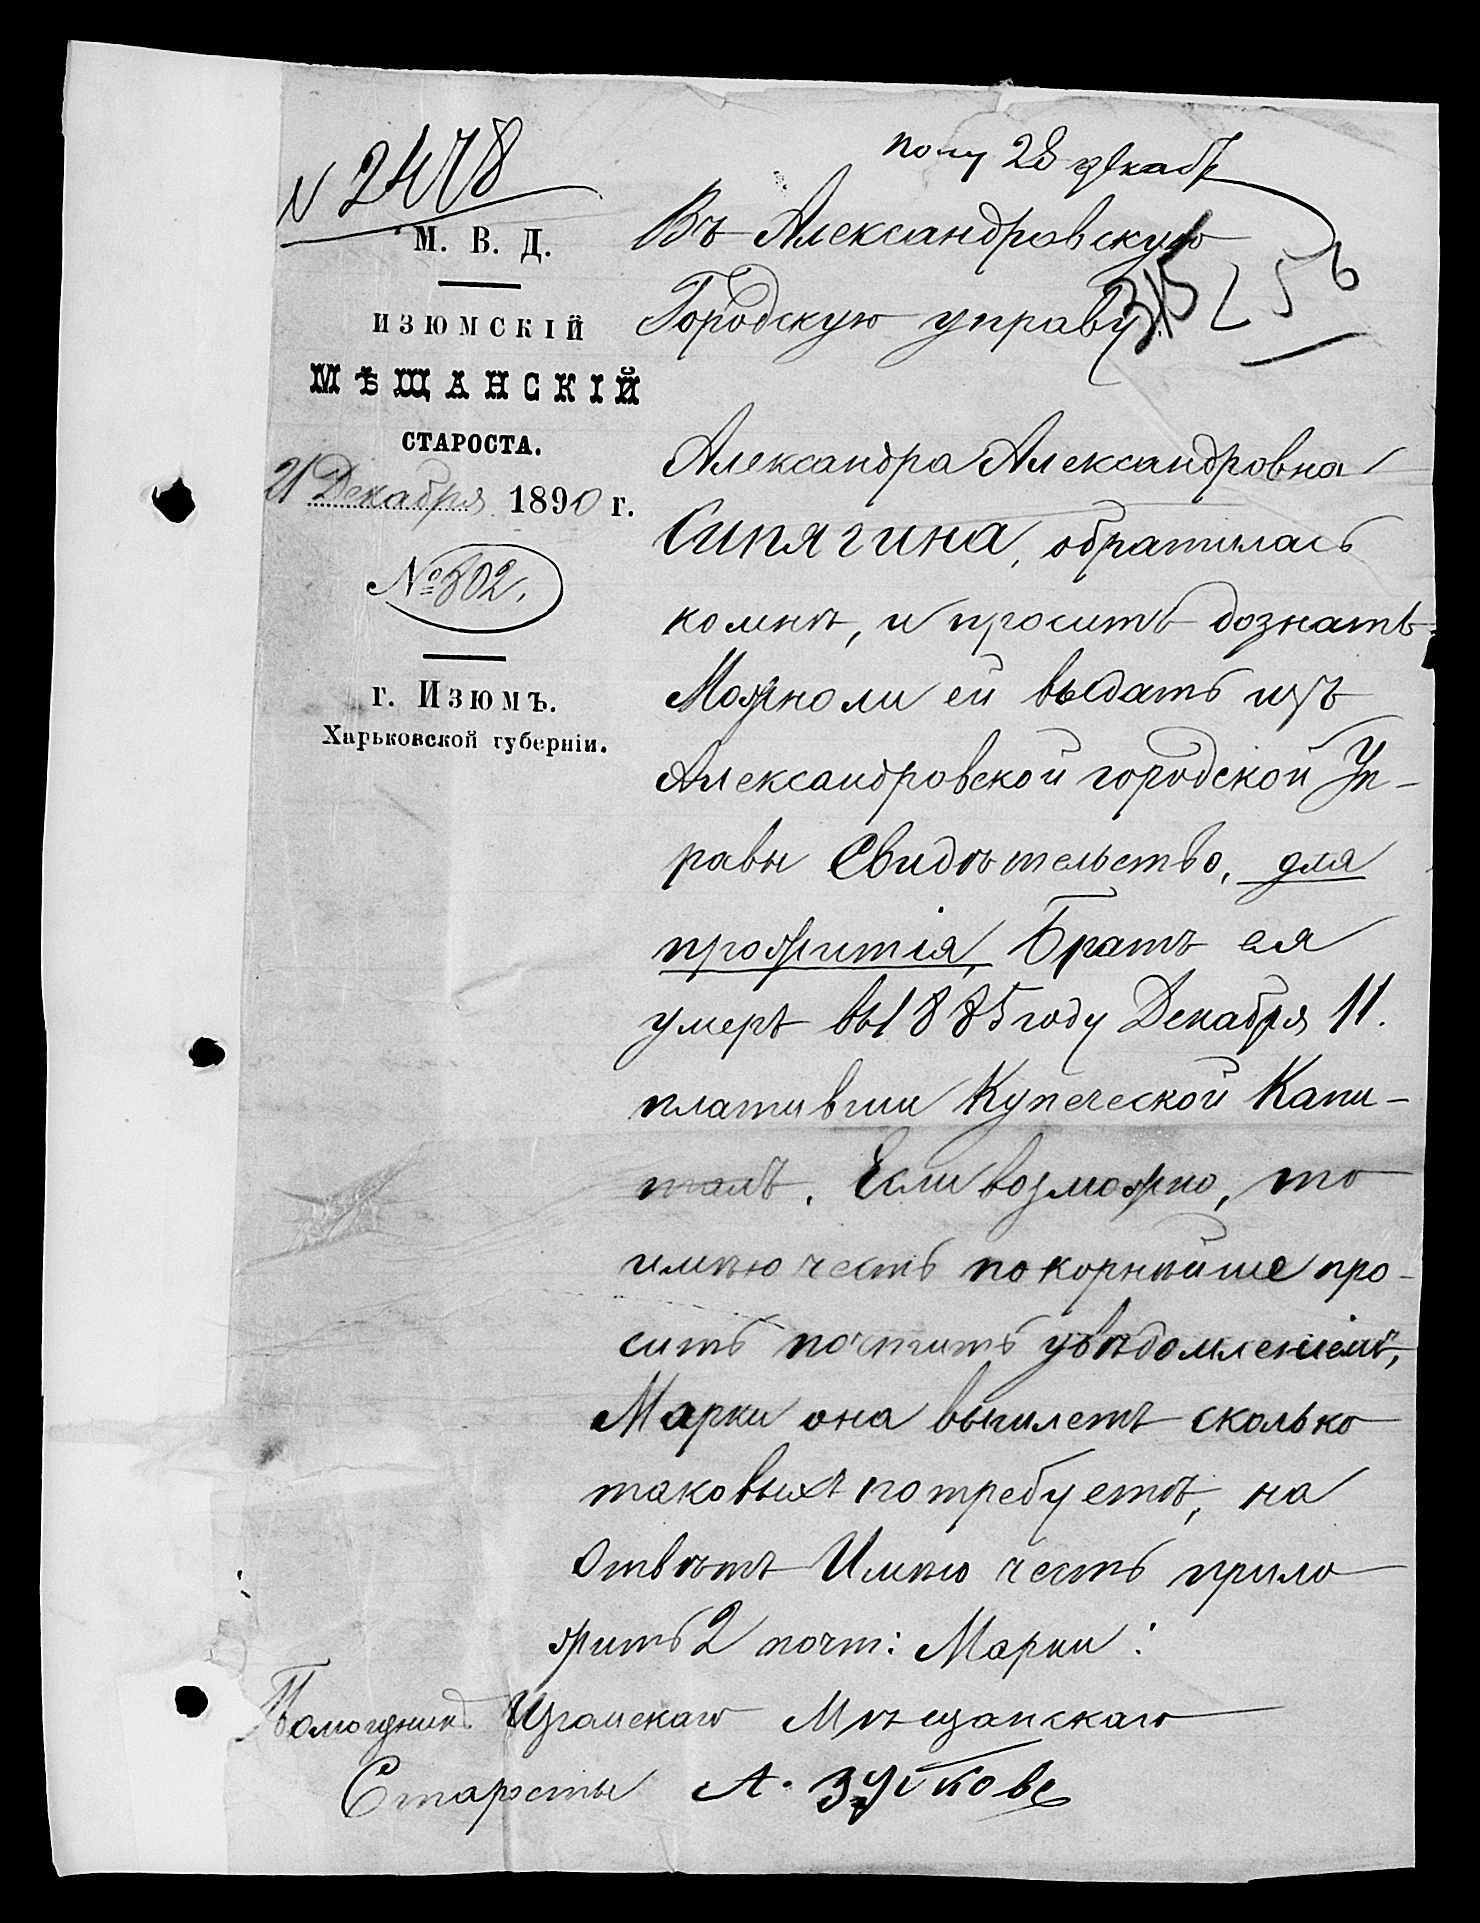 N 2478
М. В. Д.
ИЗЮМСКІЙ
МѢЩАНСКІЙ
СТАРОСТА.
21 Декабря 1890 г.
№ 502.
г. Изюмъ.
Харьковской губерніи.
полу 28 декабр
Въ Александровскую
Городскую управу.
315 256
Александра Александровна
Сипягина, обратилась
комнѣ, и проситъ дознать
Можноли ей выдать изъ
Александровской городской Уп-
равы Свидѣтельство, для
прожитія, Братъ ея
умеръ въ 1885 году Декабря 11.
плативши Купеческой Капи-
талъ. Если возможно, то
имѣю честь покорнѣйше про-
сить почтить увѣдомленіемъ,
Марки она вышлетъ сколько
таковыхъ потребуетъ, на
Отвѣтъ Имѣю честь прило
жить 2 почт: Марки:
Помощникъ Изюмскаго Мѣщанскаго
Старосты А.